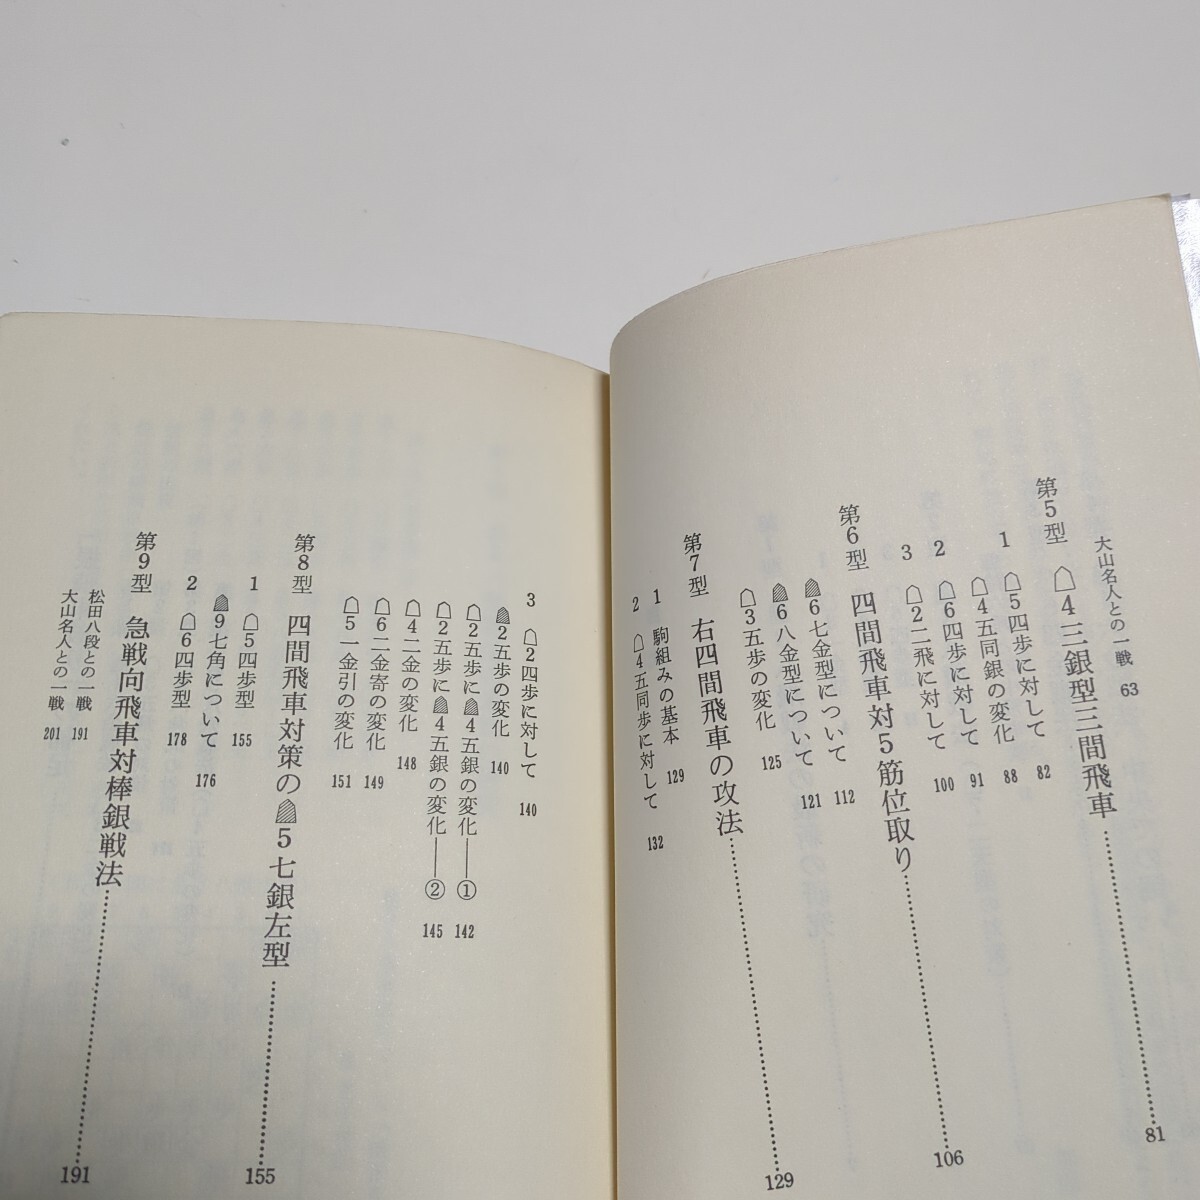 大山名人との一戦 63
第5型 ☖4三銀型三間飛車 81
1 ☖5四歩に対して 82
☖4五同銀の変化 88
2 ☖6四歩に対して 91
3 ☖2二飛に対して 100
第6型 四間飛車対5筋位取り 106
☗6七金型について 112
☗6八金型について 121
☖3五歩の変化 125
第7型 右四間飛車の攻法 129
1 駒組みの基本 129
2 ☖4五同歩に対して 132
3 ☖2四歩に対して 140
☗2五歩の変化 140
☖2五歩に☗4五銀の変化――① 142
☖2五歩に☗4五銀の変化――② 145
☖4二金の変化 148
☖6二金寄の変化 149
☖5一金引の変化 151
第8型 四間飛車対策の☗5七銀左型 155
1 ☖5四歩型 155
☗9七角について 176
2 ☖6四歩型 178
第9型 急戦向飛車対棒銀戦法 191
松田八段との一戦 191
大山名人との一戦 201